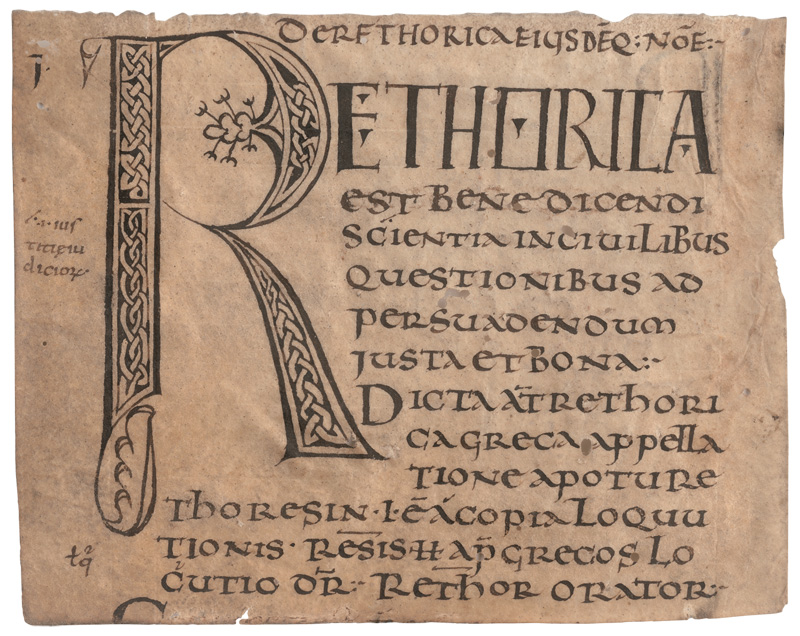 DE RETHORICA EIUSDĒQ: NOĒ:-
RETHORICA
EST BENE DICENDI
SCIENTIA IN CIUILIBUS
QUESTIONIBUS AD
PERSUADENDUM
IUSTA ET BONA:-
DICTA AŪT RETHORI
CA GRECA APPELLA
TIONE APOTU RE
THORESIN·I·Ē A COPIA LOQUU
TIONIS· RESIS H̄ AP̄ GRECOS LO
CUTIO DR̄:- RETHOR ORATOR:-